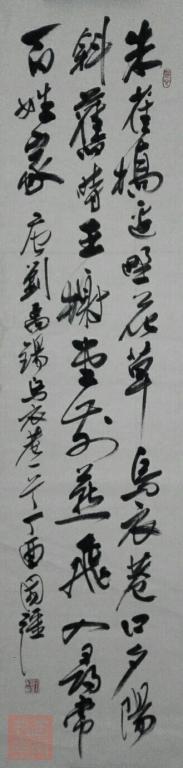 朱雀橋邊野花草烏衣巷口夕陽
斜舊時王榭堂前燕飛入尋常
百姓家 唐劉禹錫烏衣巷一首丁酉國疆